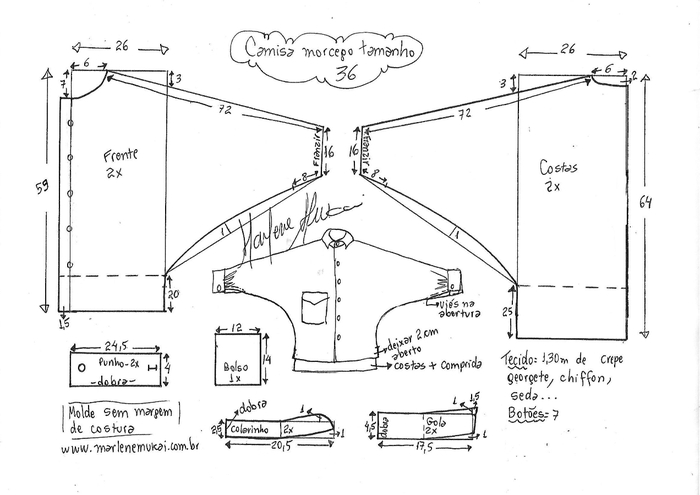 Camisa morcego tamanho
36
26
6
7
3
72
59
Frente
2x
Franzir
16
8
1
20
1,5
26
6
2
3
72
16
Franzir
8
1
Costas
2x
64
25
Marlene Mukai
viés na
abertura
deixar 2cm
aberto
costas + comprida
24,5
Punho-2x
-dobra-
4
12
Bolso
1x
14
Tecido: 1,30m de crepe
georgete, chiffon,
seda...
Botões: 7
Molde sem margem
de costura
www.marlenemukai.com.br
dobra
1
2,5
Colarinho
2x
1
20,5
1
1,5
4,5
dobra
Gola
2x
1
17,5